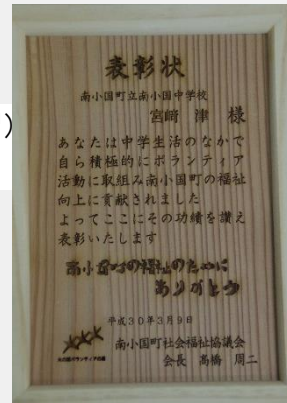 )
表彰状
南小国町立南小国中学校
宮﨑 津 様
あなたは中学生活のなかで
自ら積極的にボランティア
活動に取組み南小国町の福祉
向上に貢献されました
よってここにその功績を讃え
表彰いたします
南小国町の福祉のために
ありがとう
平成30年3月9日
南小国町社会福祉協議会
会長 高橋 周二